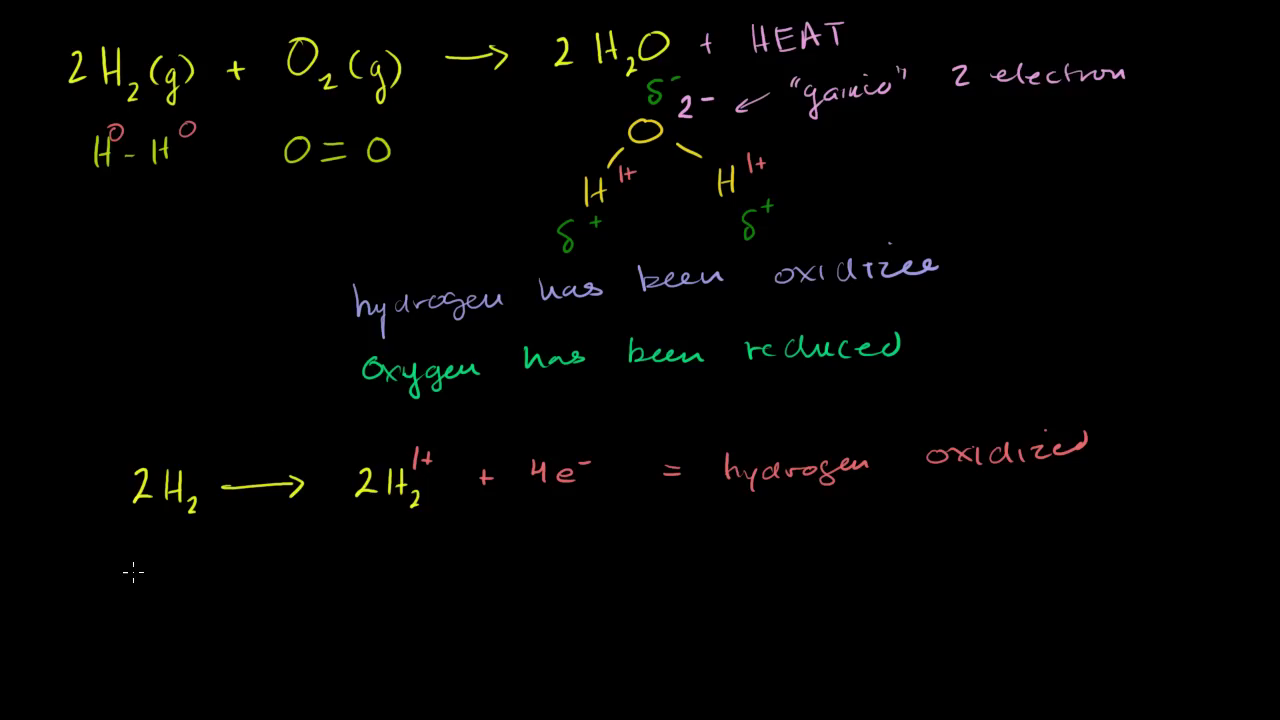 2H₂(g) + O₂(g) → 2H₂O + HEAT
δ⁻ 2⁻ ← "gained" 2 electron
H⁰-H⁰ O=O O
H¹⁺ H¹⁺
δ⁺ δ⁺
hydrogen has been oxidized
oxygen has been reduced
2H₂ → 2H₂¹⁺ + 4e⁻ = hydrogen oxidized